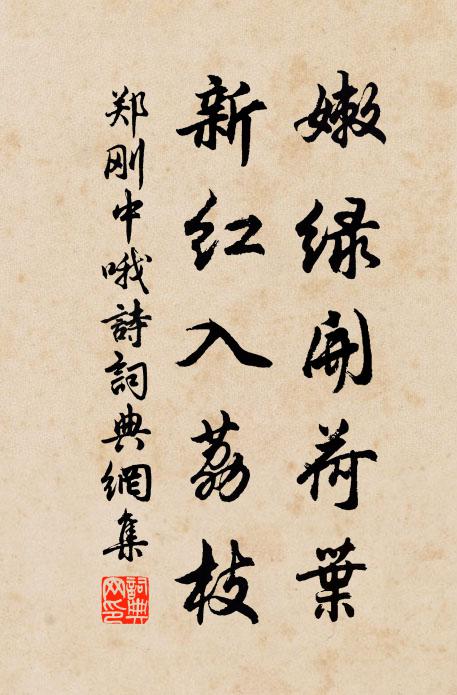 嫩绿开荷葉
新红入荔枝
郑刚中哦詩詞典網集
詞典
网印